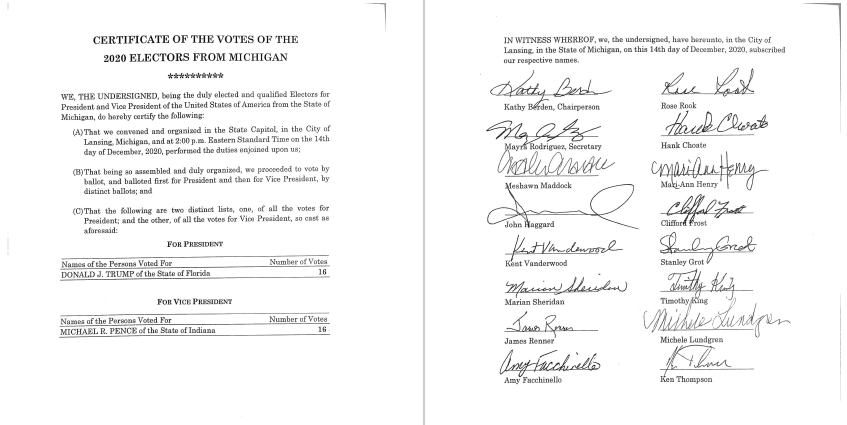 CERTIFICATE OF THE VOTES OF THE
2020 ELECTORS FROM MICHIGAN
**********
WE, THE UNDERSIGNED, being the duly elected and qualified Electors for
President and Vice President of the United States of America from the State of
Michigan, do hereby certify the following:
(A) That we convened and organized in the State Capitol, in the City of
Lansing, Michigan, and at 2:00 p.m. Eastern Standard Time on the 14th
day of December, 2020, performed the duties enjoined upon us;
(B) That being so assembled and duly organized, we proceeded to vote by
ballot, and balloted first for President and then for Vice President, by
distinct ballots; and
(C) That the following are two distinct lists, one, of all the votes for
President; and the other, of all the votes for Vice President, so cast as
aforesaid:
FOR PRESIDENT
Names of the Persons Voted For Number of Votes
DONALD J. TRUMP of the State of Florida 16
FOR VICE PRESIDENT
Names of the Persons Voted For Number of Votes
MICHAEL R. PENCE of the State of Indiana 16
IN WITNESS WHEREOF, we, the undersigned, have hereunto, in the City of
Lansing, in the State of Michigan, on this 14th day of December, 2020, subscribed
our respective names.
Kathy Berden
Kathy Berden, Chairperson
Rose Rook
Rose Rook
Mayra Rodriguez, Secretary
Hank Choate
Hank Choate
Meshawn Maddock
Mari-Ann Henry
Mari-Ann Henry
John Haggard
Clifford Frost
Clifford Frost
Kent Vanderwood
Kent Vanderwood
Stanley Grot
Stanley Grot
Marian Sheridan
Marian Sheridan
Timothy King
Timothy King
James Renner
James Renner
Michele Lundgren
Michele Lundgren
Amy Facchinello
Amy Facchinello
Ken Thompson